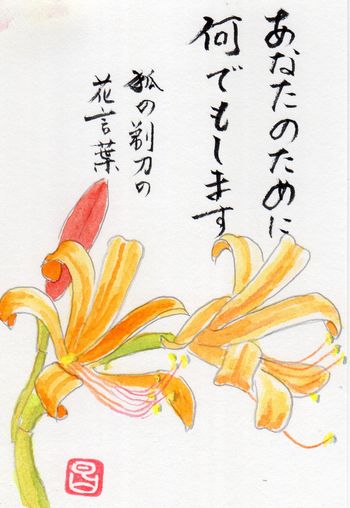 あなたのために
何でもします
狐の剃刀の
花言葉